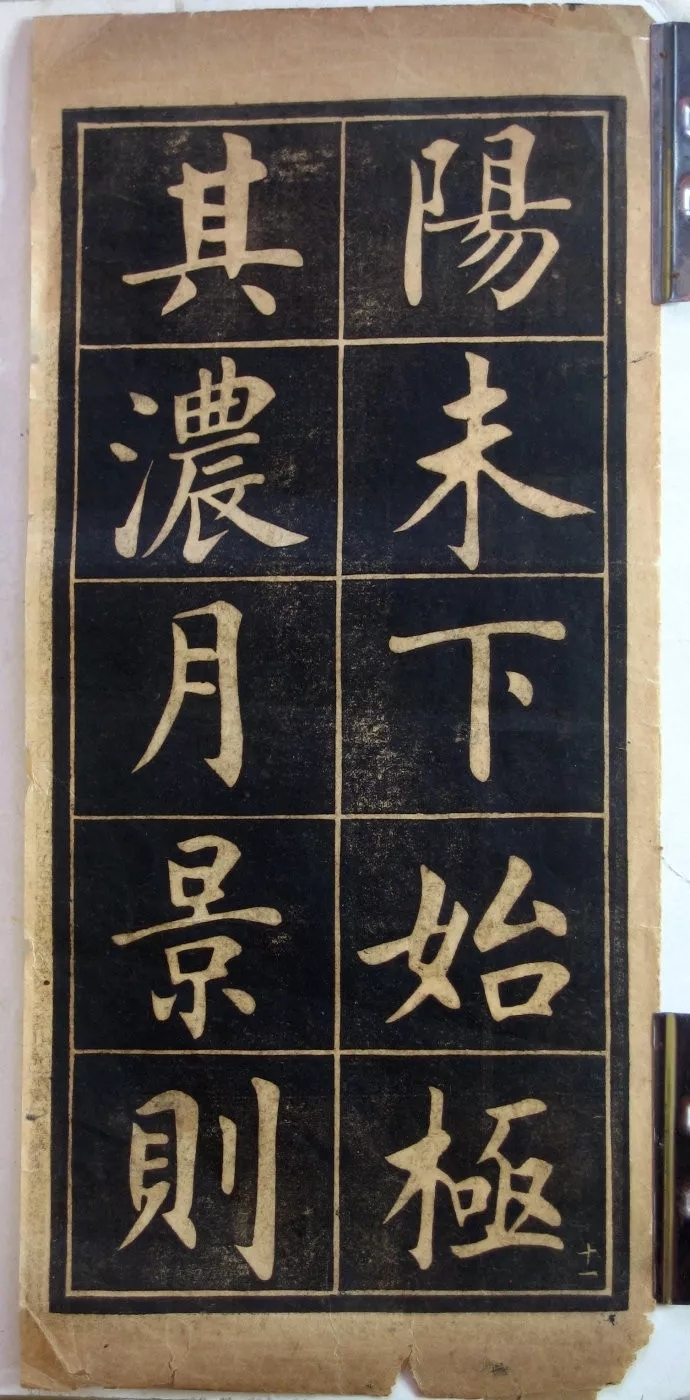 陽未下始極
其濃月景則
十一